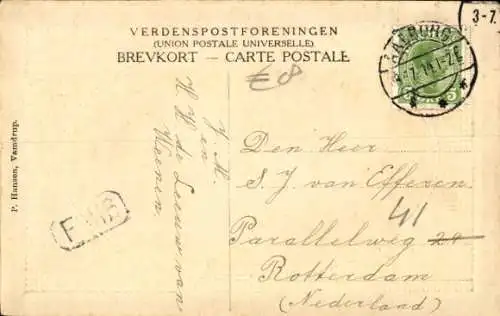 VERDENSPOSTFORENINGEN
(UNION POSTALE UNIVERSELLE)
BREVKORT — CARTE POSTALE
3-7.
€8
P. Hansen, Vamdrup.
J. M.
en
H. H. de Leeuw van
Weenen.
Den Heer
S. J. van Efferen
41
Parallelweg 20
Rotterdam
(Nederland)